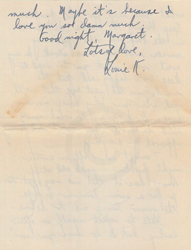 much. Maybe it's because I
love you so damn much.
Good night, Margaret.
Lots of love,
Louie K.